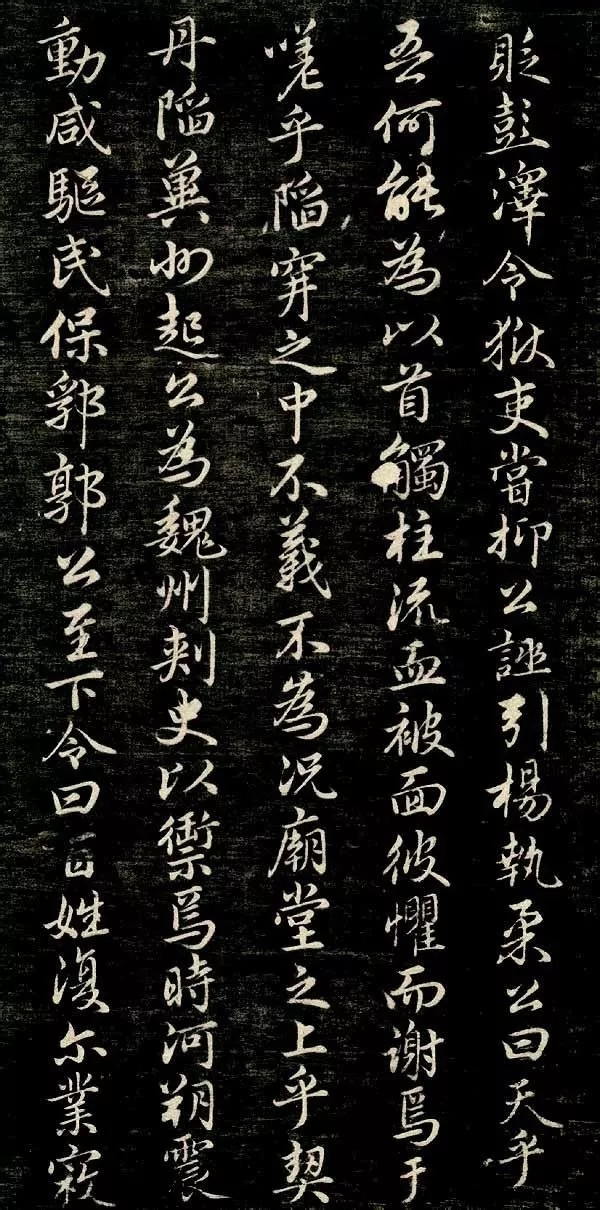 貶彭澤令獄吏嘗抑公誣引楊執柔公曰天乎
吾何能為以首觸柱流血被面彼懼而謝焉于
嗟乎陥穽之中不義不為况廟堂之上乎契
丹陥兾州起公為魏州刾史以禦焉時河朔震
動咸驅民保郛郭公至下令曰百姓復尔業寇